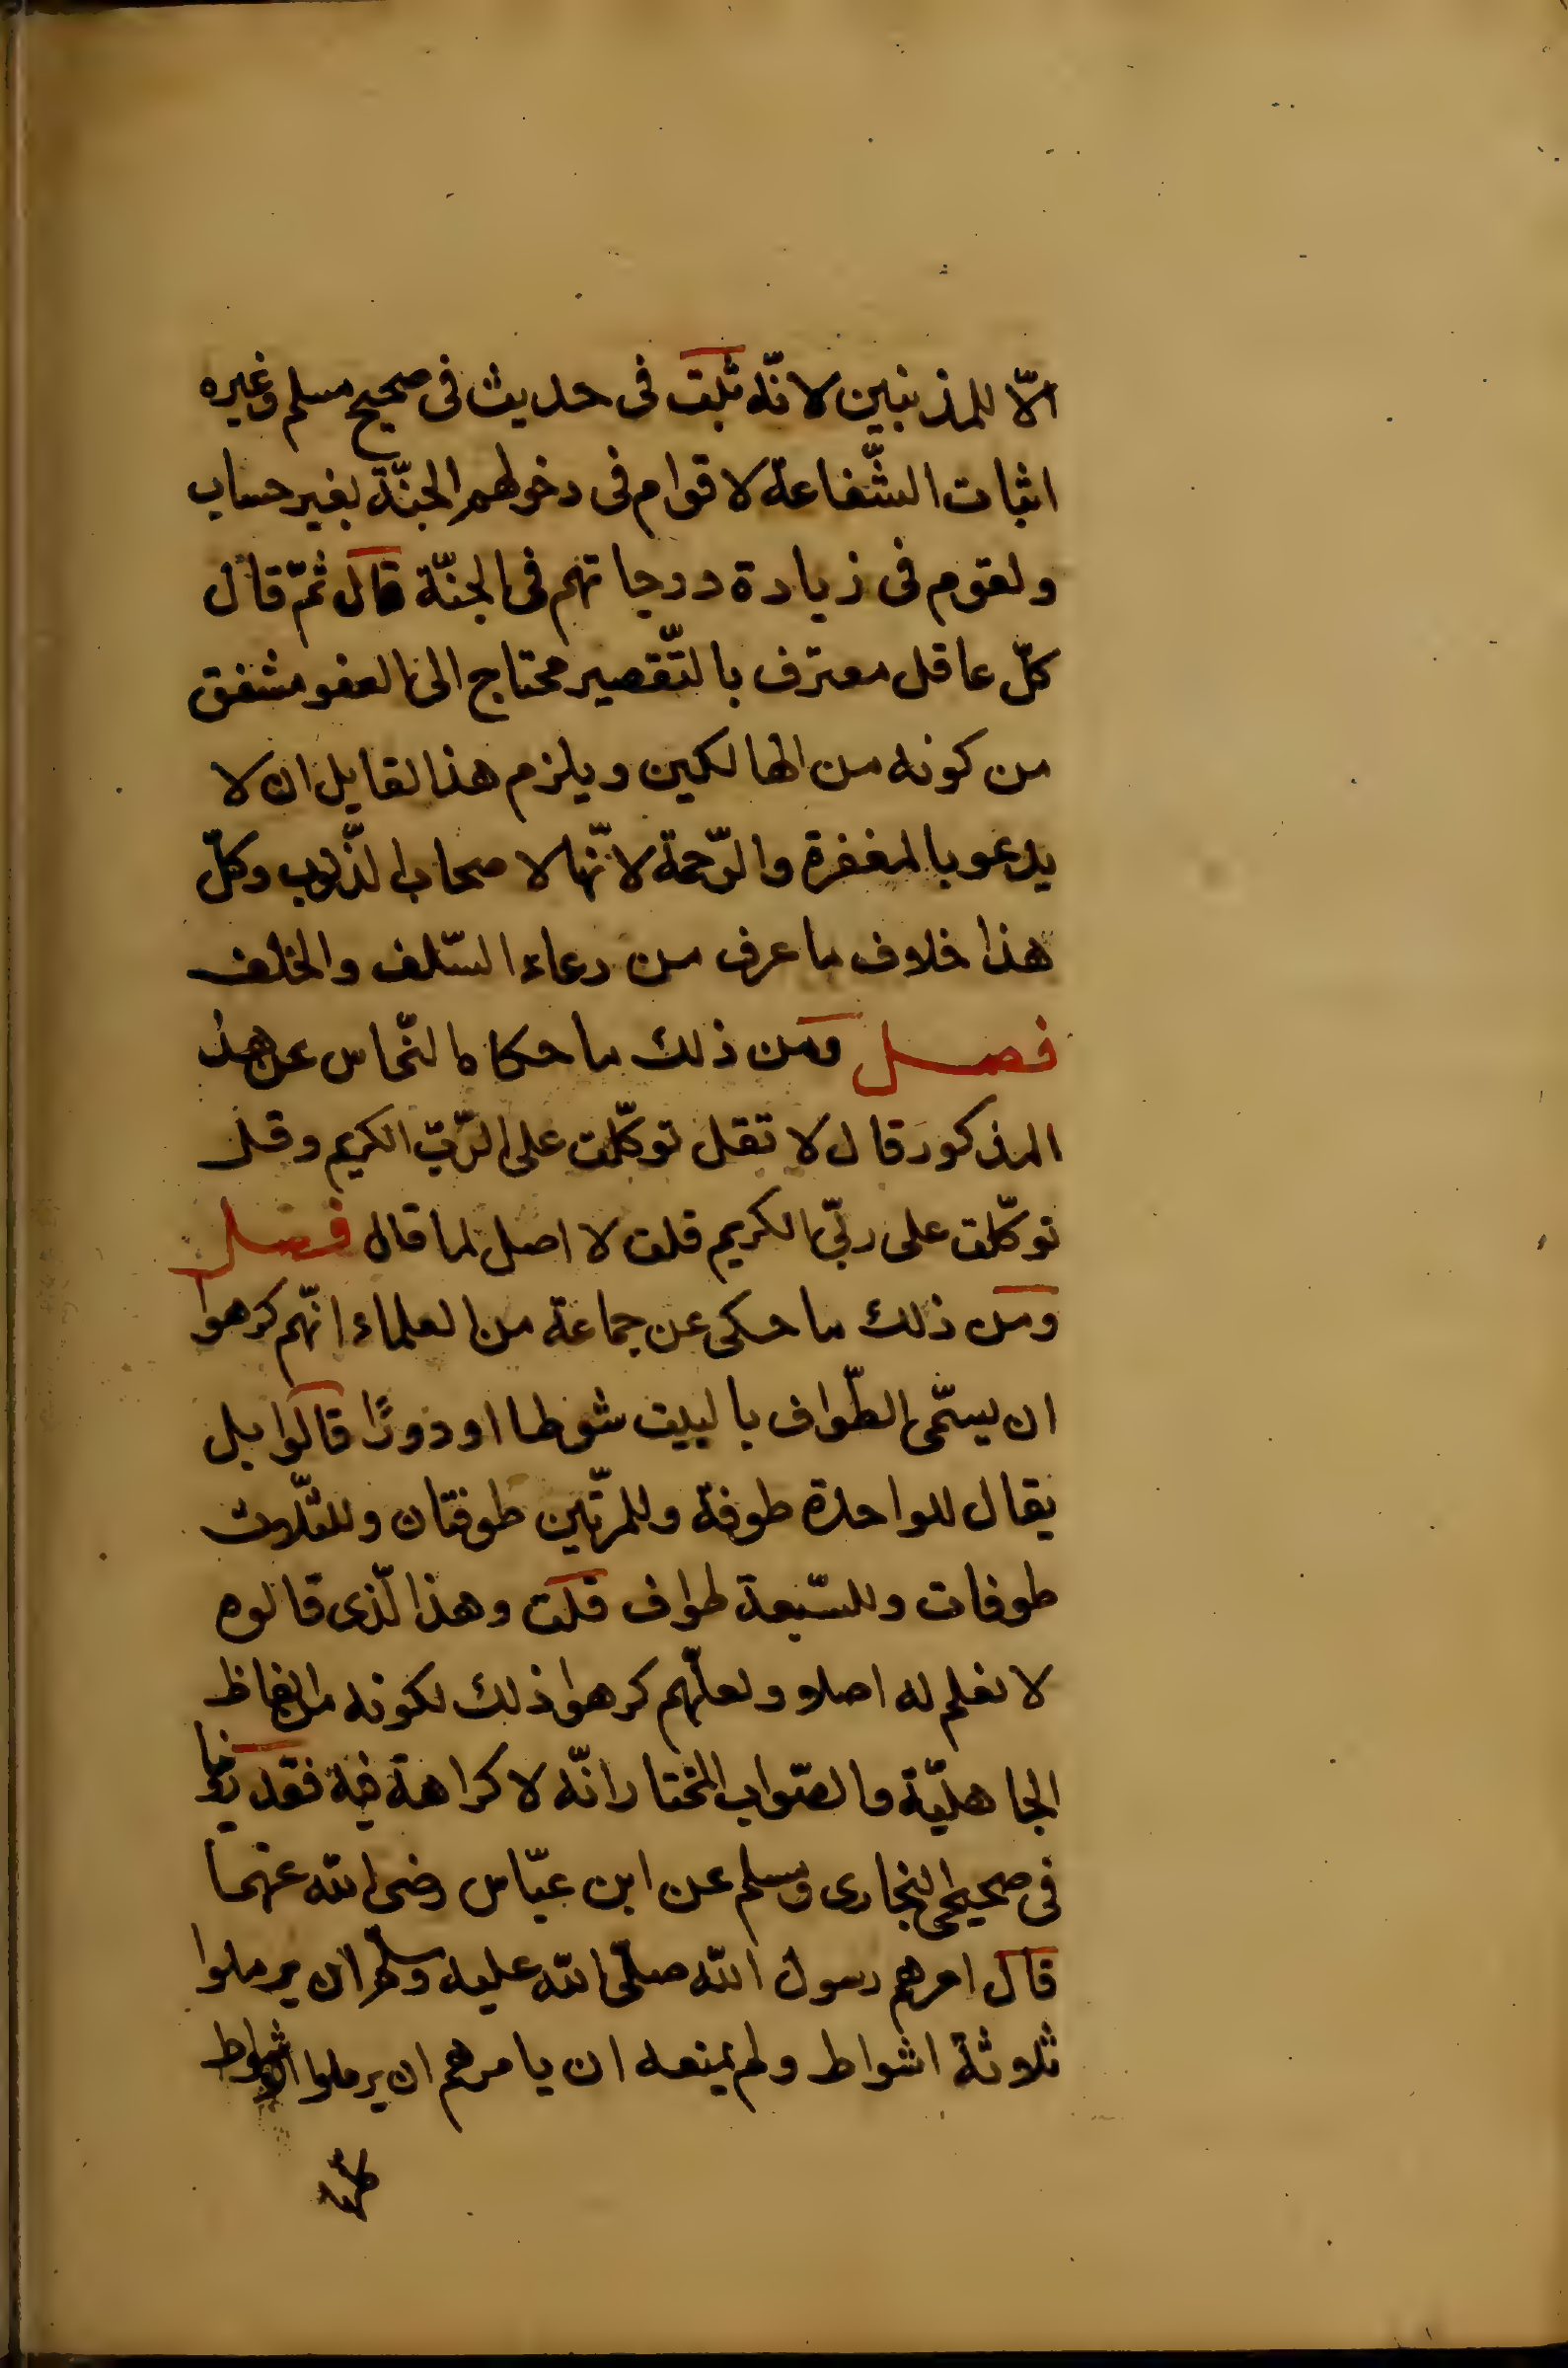 الّا للمذنبين لانّه ثبت فى حديث فى صحيح مسلم وغيره
اثبات الشّفاعة لاقوام فى دخولهم الجنّة بغير حساب
ولقوم فى زيادة درجاتهم فى الجنّة قال ثمّ قال
كلّ عاقل معترف بالتّقصير محتاج الى العفو مشفق
من كونه من الهالكين ويلزم هذا لقايل ان لا
يدعو بالمغفرة والرّحمة لانّها لاصحاب الذّنوب وكلّ
هذا خلاف ما عرف من دعاء السّلف والخلف
فصل ومن ذلك ما حكاه النّحاس عن هذا
المذكور قال لا تقل توكّلت على الرّبّ الكريم وقل
توكّلت على ربّى الكريم قلت لا اصل لما قال فصل
ومن ذلك ما حكى عن جماعة من العلماء انّهم كرهوا
ان يسمّى الطّواف بالبيت شوطا او دورًا قالوا بل
يقال للواحدة طوفة وللمرّتين طوفتان وللثّلاث
طوفات وللسّبعة طواف قلت وهذا لّذى قالوه
لا نعلم له اصلا ولعلّهم كرهوا ذلك لكونه من الفاظ
الجاهليّة والصّواب المختار انّه لا كراهة فيه فقد روينا
فى صحيحى البخارى ومسلم عن ابن عبّاس رضى الله عنهما
قال امرهم رسول الله صلّى الله عليه وسلّم ان يرملوا
ثلاثة اشواط ولم يمنعه ان يامرهم ان يرملوا الاشواط